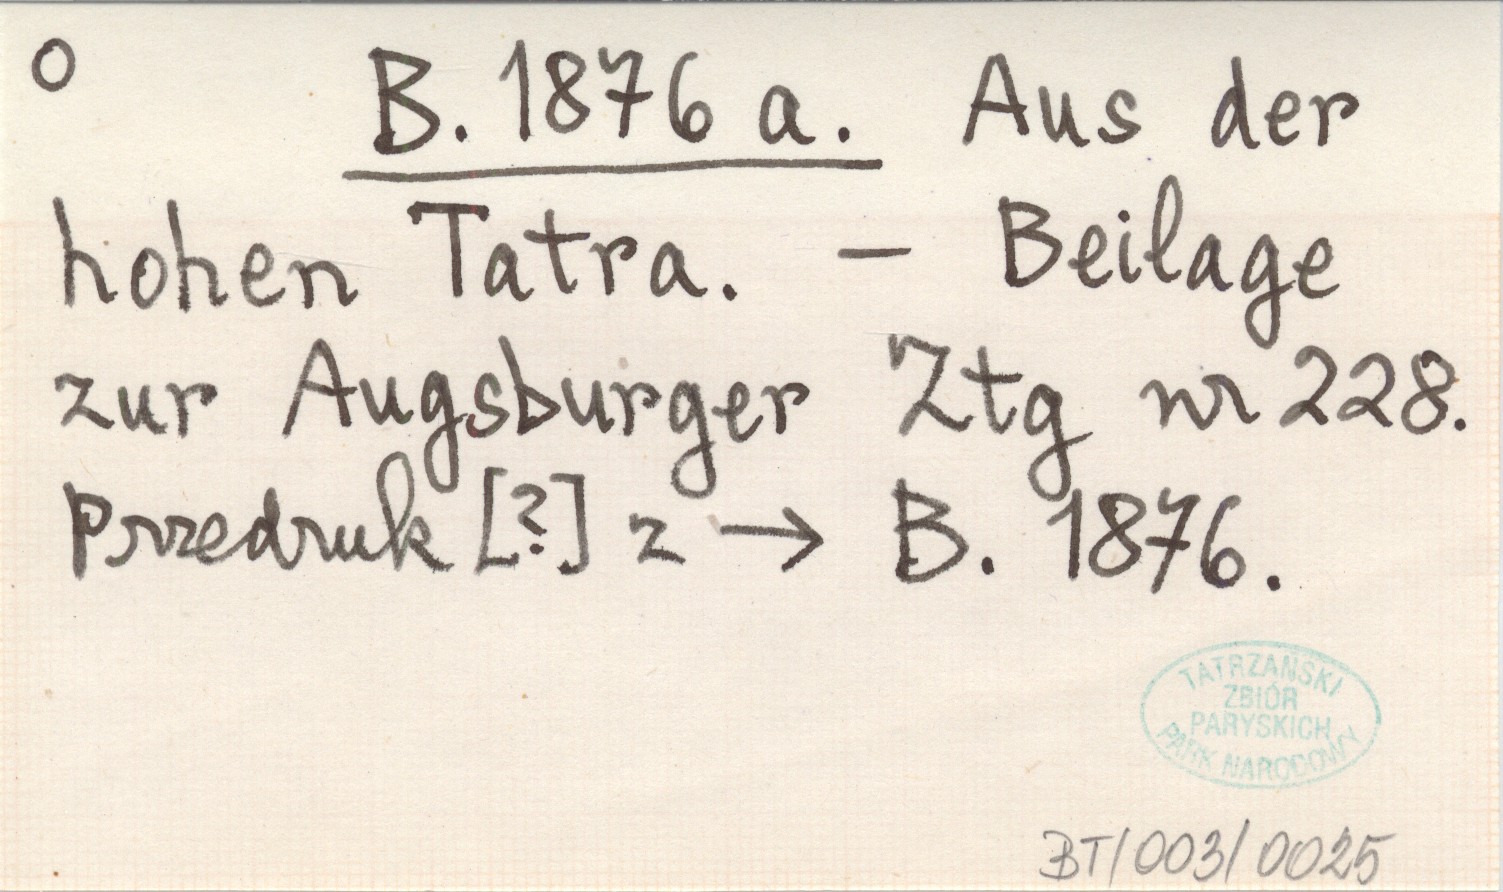 O B. 1876 a. Aus der
hohen Tatra. – Beilage
zur Augsburger Ztg nr 228.
Przedruk [?] z → B. 1876.
TATRZAŃSKI
ZBIÓR
PARYSKICH
PARK NARODOWY
BT/003/0025